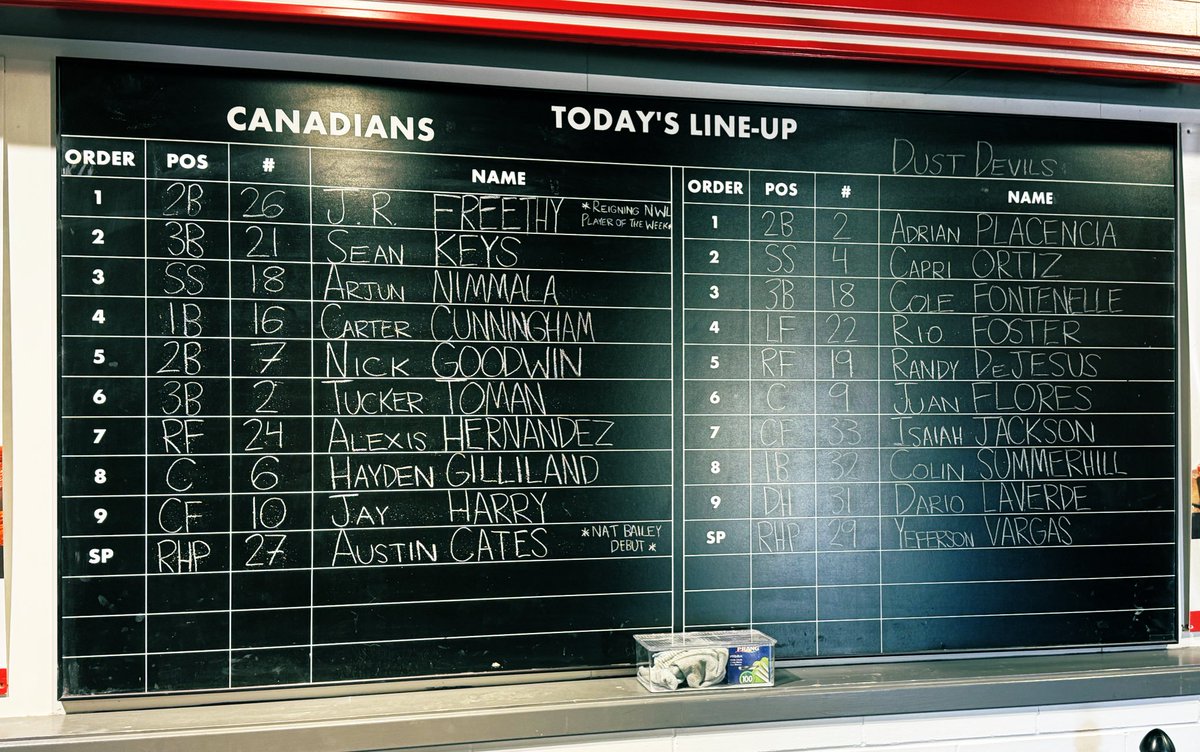 CANADIANS TODAY'S LINE-UP
DUST DEVILS
ORDER POS # NAME
1 2B 26 J.R. FREETHY *REIGNING NWL PLAYER OF THE WEEK*
2 3B 21 SEAN KEYS
3 SS 18 ARJUN NIMMALA
4 1B 16 CARTER CUNNINGHAM
5 2B 7 NICK GOODWIN
6 3B 2 TUCKER TOMAN
7 RF 24 ALEXIS HERNANDEZ
8 C 6 HAYDEN GILLILAND
9 CF 10 JAY HARRY
SP RHP 27 AUSTIN CATES *NAT BAILEY DEBUT*
ORDER POS # NAME
1 2B 2 ADRIAN PLACENCIA
2 SS 4 CAPRI ORTIZ
3 3B 18 COLE FONTENELLE
4 LF 22 RIO FOSTER
5 RF 19 RANDY DEJESUS
6 C 9 JUAN FLORES
7 CF 33 ISAIAH JACKSON
8 1B 32 COLIN SUMMERHILL
9 DH 31 DARIO LAVERDE
SP RHP 29 YEFERSON VARGAS
PRANG
100